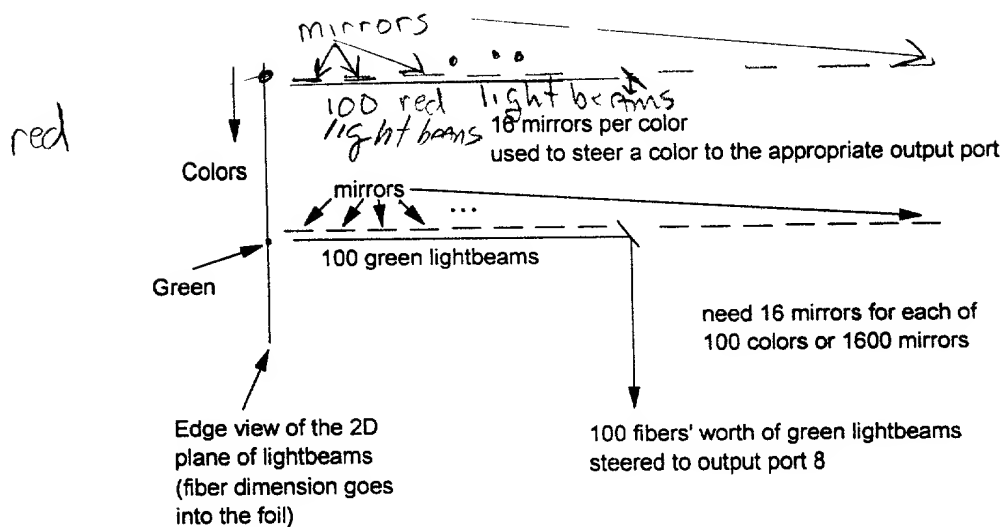 mirrors
100 red light beams
light beams
red
16 mirrors per color
used to steer a color to the appropriate output port
Colors
mirrors
...
100 green lightbeams
Green
need 16 mirrors for each of
100 colors or 1600 mirrors
Edge view of the 2D
plane of lightbeams
(fiber dimension goes
into the foil)
100 fibers' worth of green lightbeams
steered to output port 8